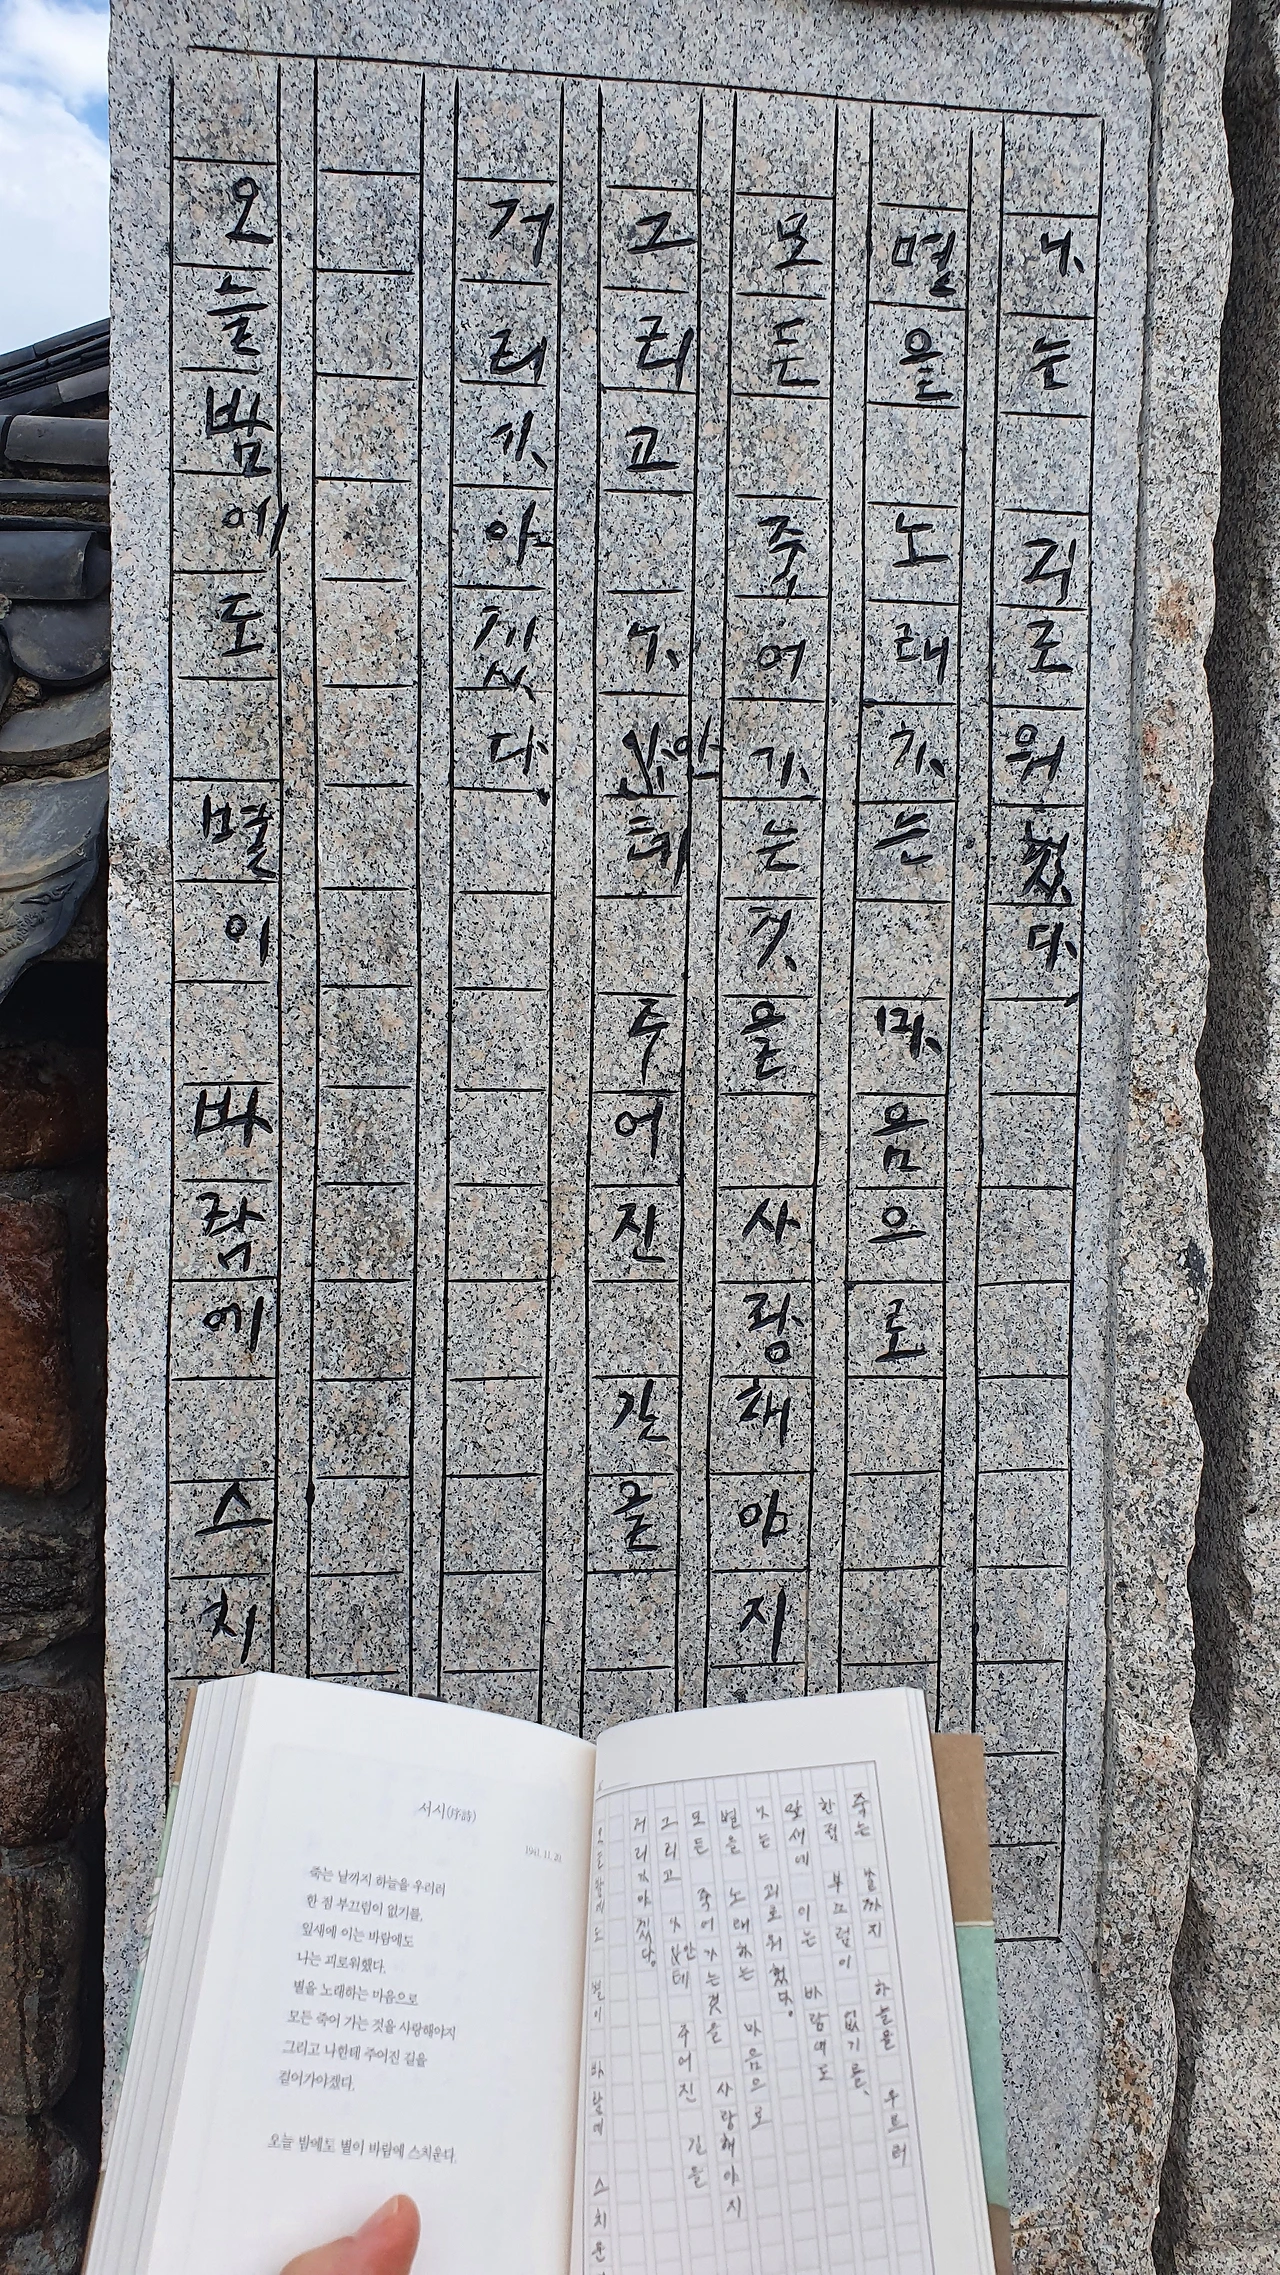 나는 괴로워했다.
별을 노래하는 마음으로
모든 죽어가는것을 사랑해야지
그리고 나안테 주어진 길을
거러가야겠다.
오늘밤에도 별이 바람에 스치
서시(序詩)
1941. 11. 20.
죽는 날까지 하늘을 우러러
한 점 부끄럼이 없기를,
잎새에 이는 바람에도
나는 괴로워했다.
별을 노래하는 마음으로
모든 죽어 가는 것을 사랑해야지
그리고 나한테 주어진 길을
걸어가야겠다.
오늘 밤에도 별이 바람에 스치운다.
죽는 날까지 하늘을 우르러
한점 부끄럼이 없기를,
잎새에 이는 바람에도
나는 괴로워했다.
별을 노래하는 마음으로
모든 죽어가는것을 사랑해야지
그리고 나안테 주어진 길을
거러가야겠다.
오늘밤에도 별이 바람에 스치운